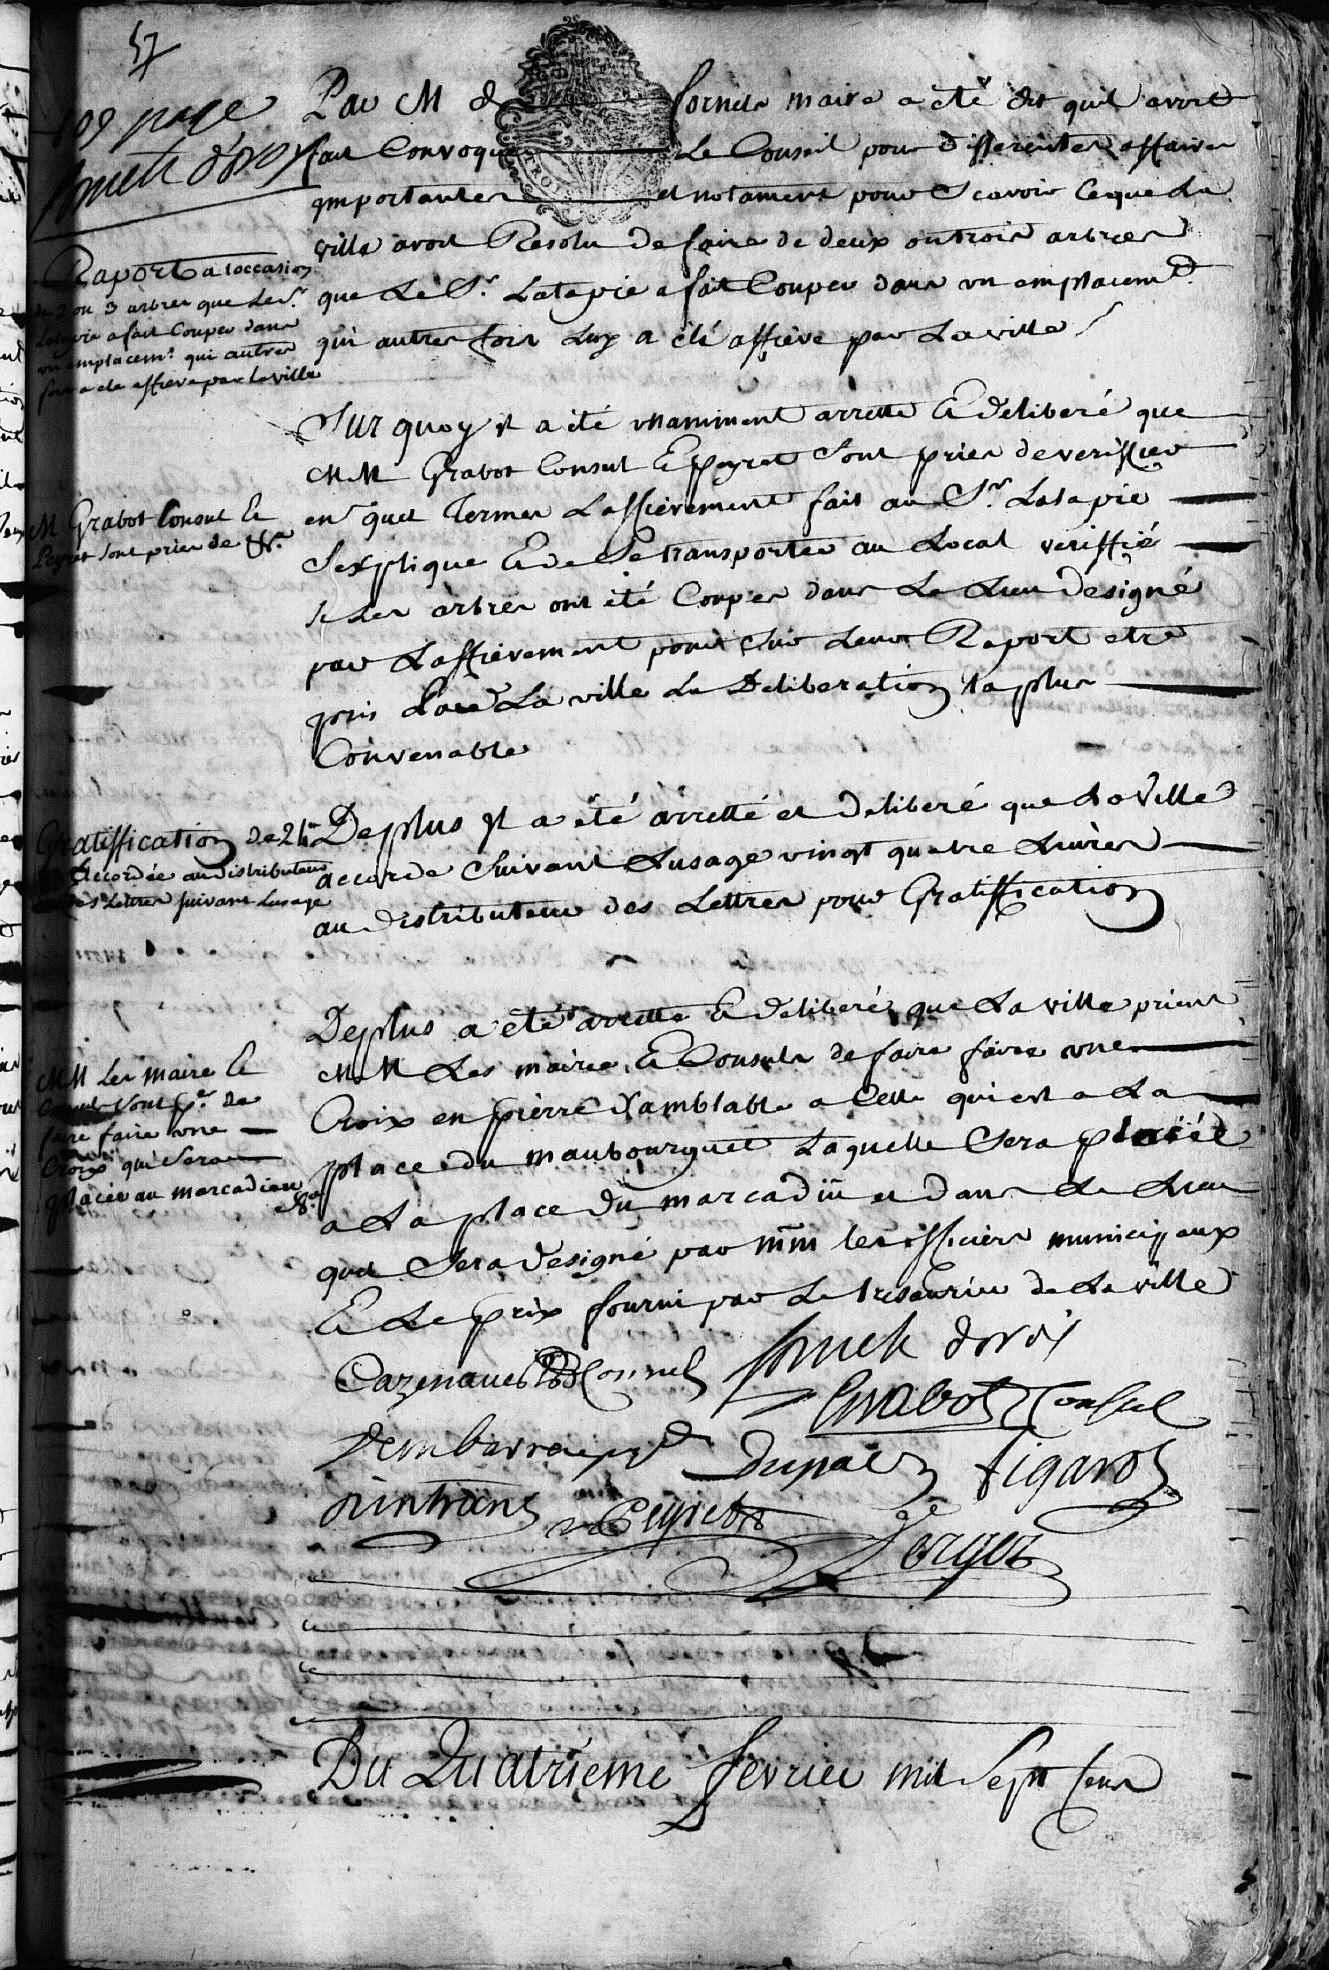 57
109 page
fornets d'oroix
Par M d fornets maire a été dit quil avoit
fait Convoquer Le Conseil pour differentes affaires
ymportantes et notament pour Scavoir Ceque La
ville avoit Resolu de faire de deux ou trois arbres
que Le Sr. Latapie a fait Couper dans un emplacemt.
qui autres fois Luy a été affievé par La ville
Raport a loccasion
de 2 ou 3 arbres que Le Sr.
Latapie a fait Couper dans
un emplacemt. qui autres
fois a ete affieve par la ville
Sur quoy il a été unanimement arretté Et deliberé que
MM Grabot Consul Et Peyret sont pries de veriffier
en quel Termes Laffievement fait au Sr. Latapie
Sexplique Et de Se transporter au Local veriffié
Si Les arbres ont été Coupés dans Le Lieu designé
par Laffievement pour sur Leur Raport etre
pris par La ville La Deliberation la plus
Convenable
M Grabot Consul Et
Peyret sont pries de &a.
De plus Il a été arretté et deliberé que La Ville
accorde Suivant Lusage vingt quatre Livres
au distributeur des Lettres pour Gratiffication
Gratiffication de 24 l
accordée au distributeur
des Lettres suivant Lusage
De plus a été arretté Et deliberé que La ville prient
MM Les maire Et Consuls de faire faire une
Croix en pierre Samblable a Celle qui est a La
place du maubourguet Laquelle Sera placée
a La place du marcadiu et dans Le Lieu
quil Sera designé par MM les officiers municipaux
Et Le prix fourni par Le tresaurier de La ville
MM Les maire Et
Consuls sont pr. de
faire faire une
Croix qui sera
placée au marcadieu
&a
Cazenave Consul fornets doroix
Grabot Consul
Dembarrere Dupac figarol
Peyret
Verges
Du Quatrieme fevrier mil Sept Cens